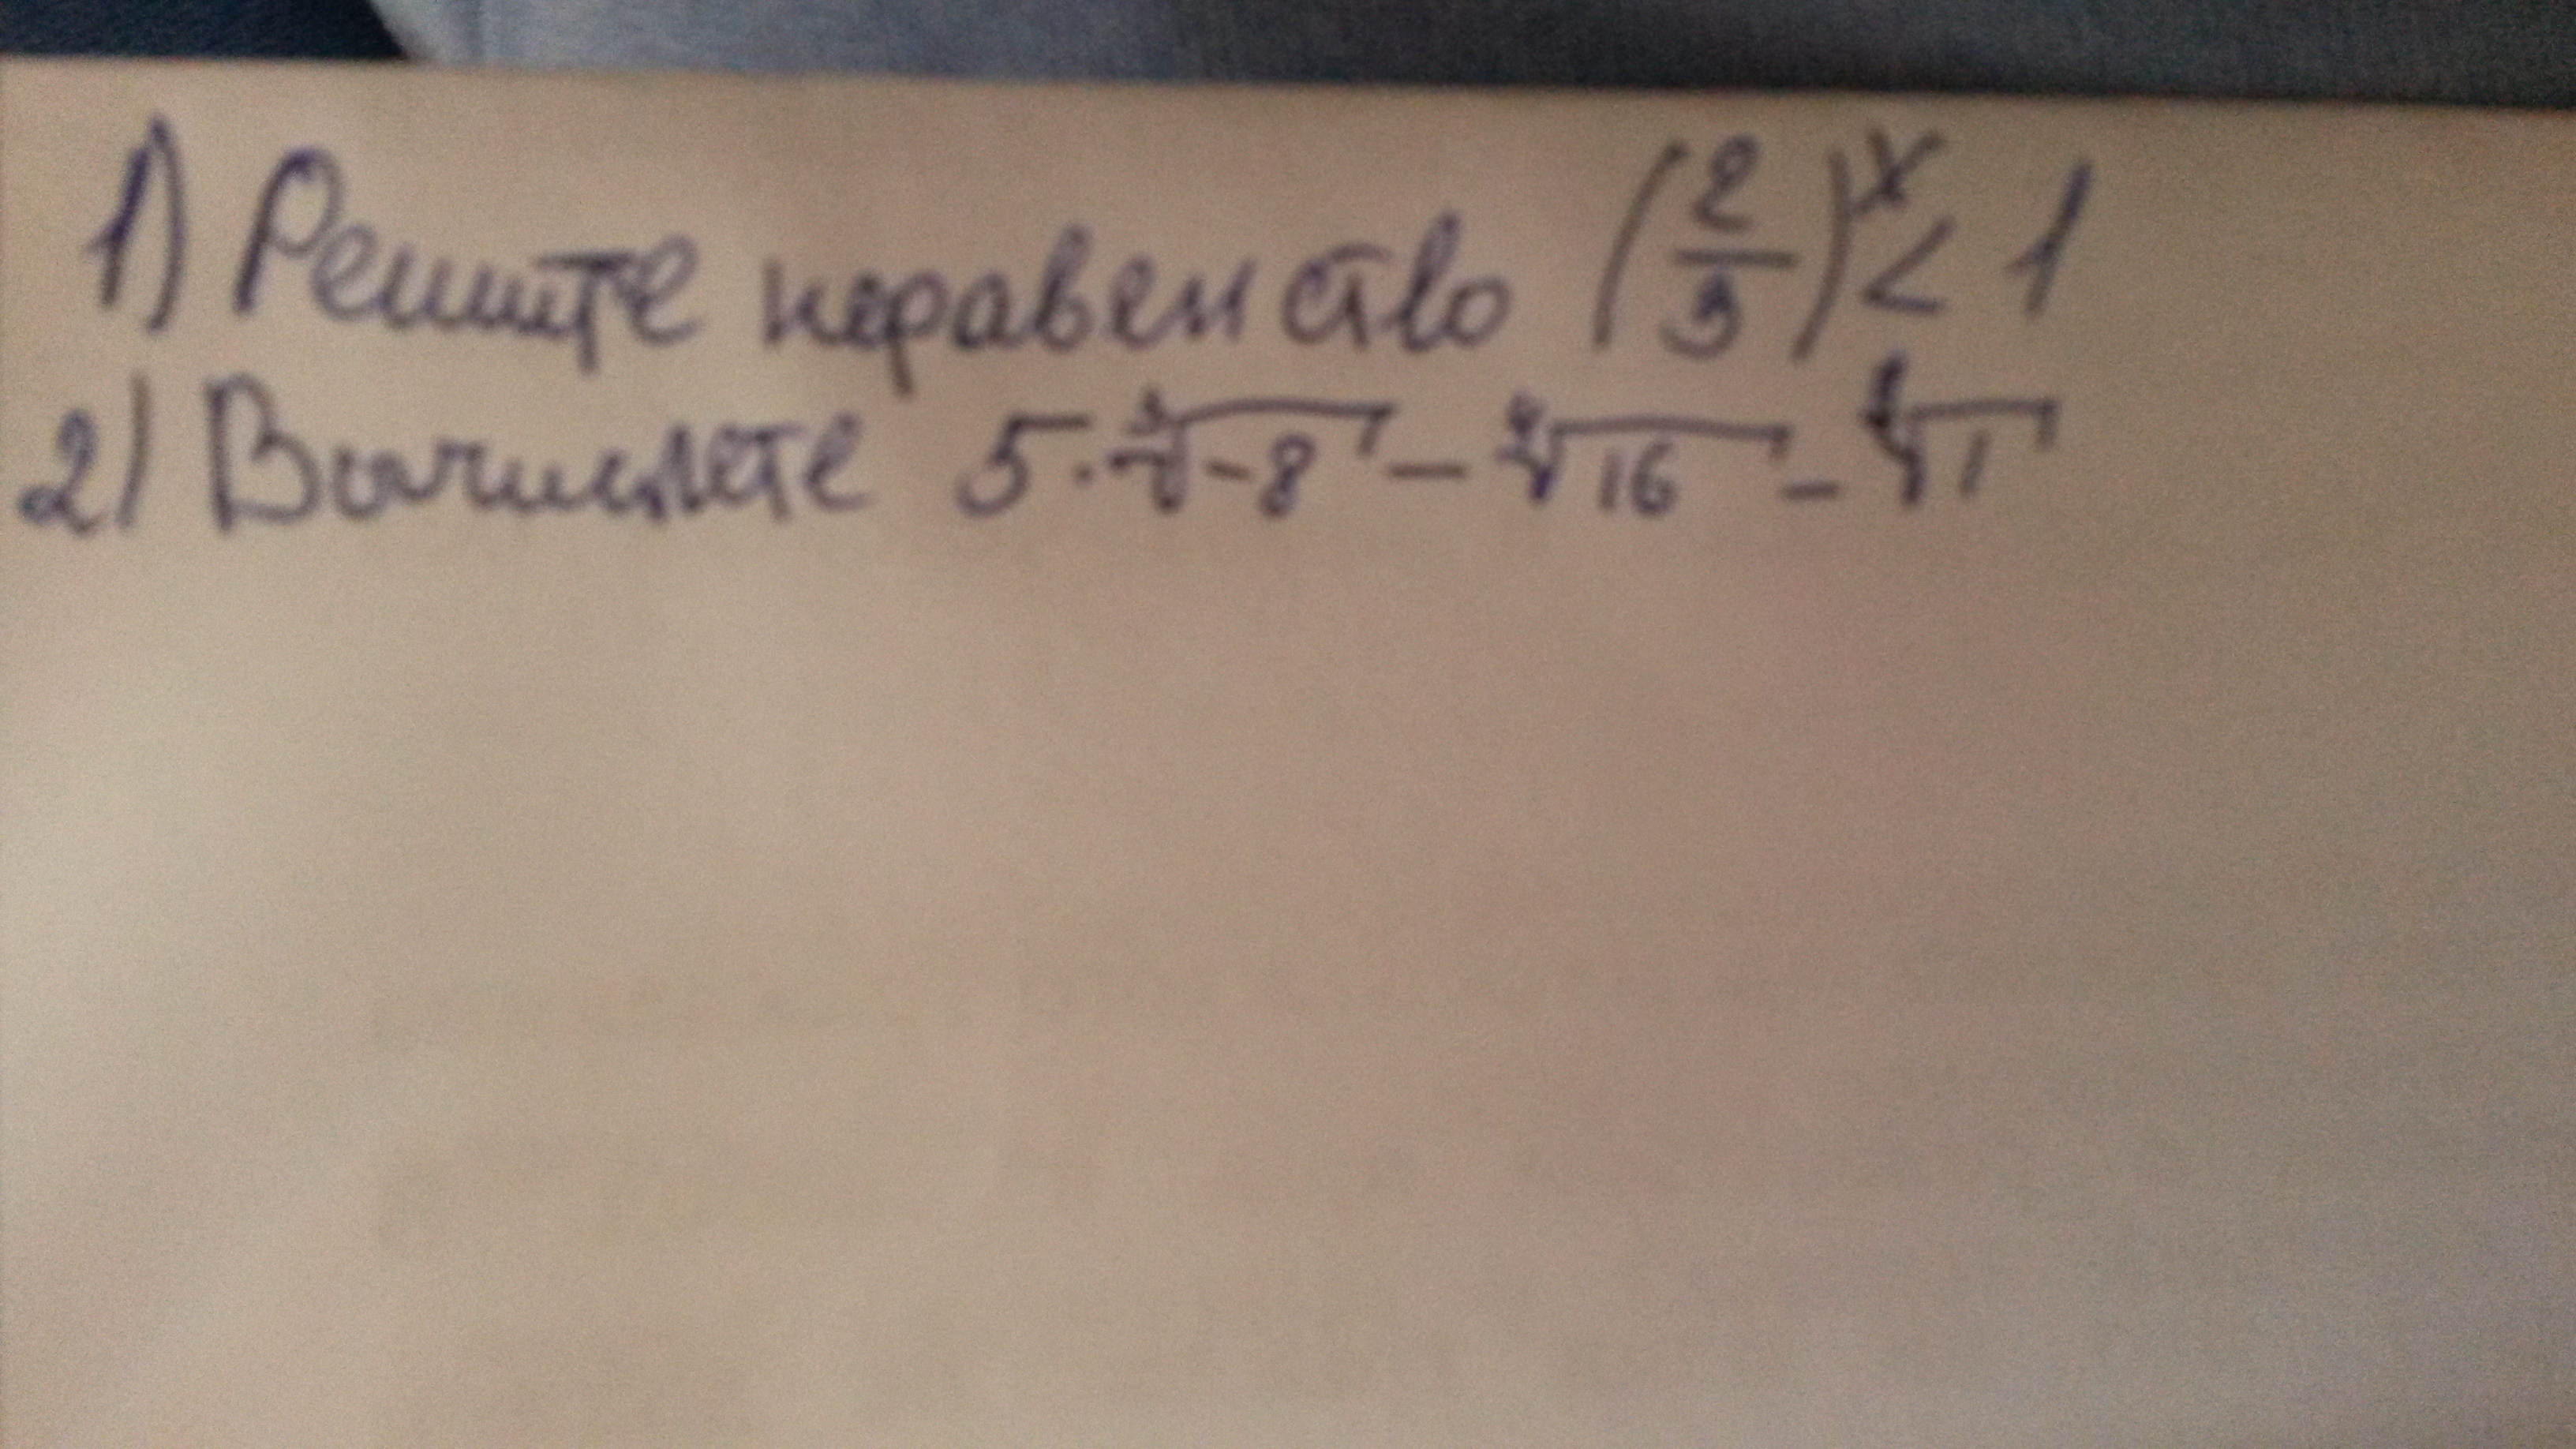 1) Решите неравенство (2/3)^x < 1
2) Вычислете 5·∛-8 - ∜16 - √1